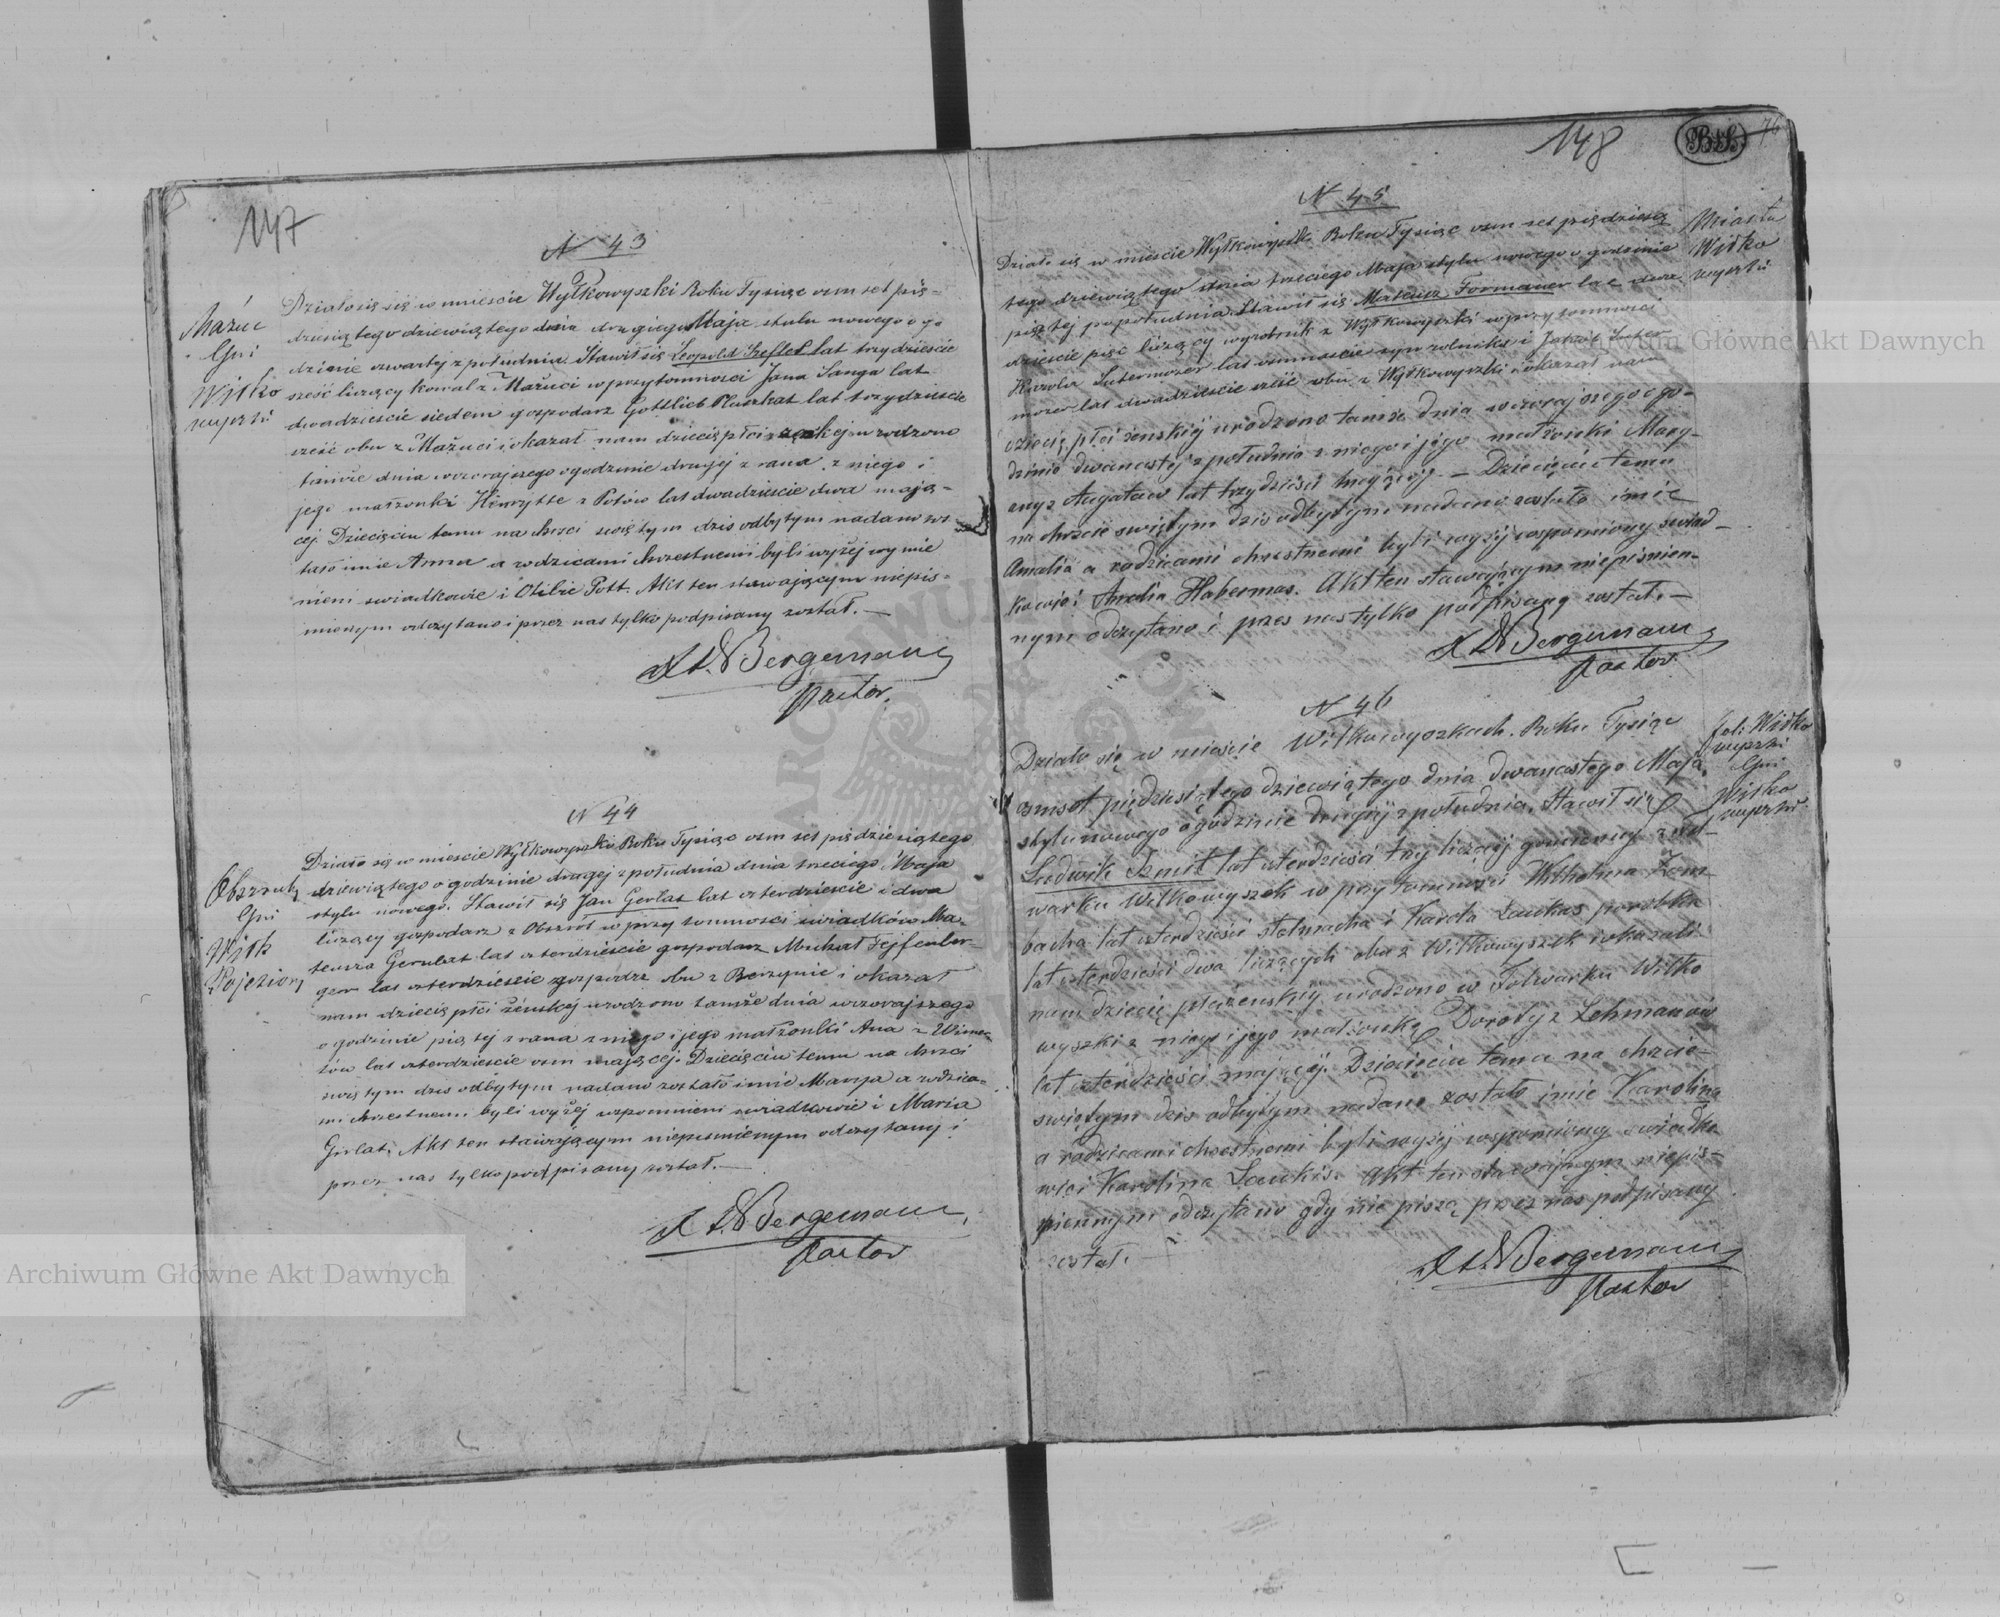 147
N 43
Mażuc
Gmi
Wiłko
wyszki
Działo się się w mieście Wyłkowyszki Roku Tysiąc osm set pię-
dziesiątego dziewiątego dnia drugiego Maja stylu nowego o go
dzinie czwarty z południa. Stawił się Leopold Szefler lat trzydzieście
sześć liczący kowal z Mażuci w przytomnosci Jana Sanga lat
dwadzieście siedem gospodarz Gottlieb Pluszkat lat trzydzieście
sześć obu z Mażuci i okazał nam dziecię płci żenskej urodzone
tamże dnia wczorajszego o godzinie drugiej z rana z niego i
jego małżonki Henrytte z Potów lat dwadzieście dwa mają-
cej. Dziecięciu temu na chrzci świętym dzis odbytym nadano zos
tało imie Anna a rodzicami chrzestnemi byli wyżej wymie
nieni swiadkowie i Otilie Pott. Akt ten stawającym niepis-
miennym odczytano i przez nas tylko podpisany został. —
Bergemann
Pastor.
N 44
Obszruty
Gmi
Wiłk
Pojeziory
Działo się w mieście Wyłkowyszki Roku Tysiąc osm set pięćdziesiątego
dziewiątego o godzinie drugej z południa dnia trzeciego Maja
stylu nowego. Stawił się Jan Gerlat lat czterdzieście i dwa
liczący gospodarz z Obszrut w przytomnosci swiadków Ma-
teusza Gerulat lat czterdzieście gospodarz Michał Fejfenber-
ger lat czterdzieście gospodarz obu z Berzynie i okazał
nam dziecię płci żenskej urodzono tamże dnia wczorajszego
o godzinie piątej z rana z niego i jego małżonki Ana z Wimer
tów lat czterdzieście osm mającej. Dziecięciu temu na chrzci
świętym dzis odbytym nadano zostało imie Maryja a rodzica-
mi chrzestnemi byli wyżej wspomnieni swiadkowie i Maria
Gerlat. Akt ten stawającym niepismiennym odczytany i
przez nas tylko podpisany został. —
Bergemann
Pastor
148
B.S.
76
N 45
Miasta
Wiłko
wyszki
Działo się w mieście Wyłkowyszki Roku Tysiąc osm set pięćdziesią
tego dziewiątego dnia trzeciego Maja stylu nowego o godzinie
piątej popołudnia. Stawił się Mateusz Formauer lat dwa
dzieście pięć liczący wyrobnik z Wyłkowyszki w przytomnosci
Karola Sutermoser lat osmnascie syn rolnika i Jakob Suter
moser lat dwadzieście sześć obu z Wyłkowyszki i okazał nam
dziecię płci żenskiej urodzono tamże dnia wczorajszego o go-
dzinie dwunastej z południa z niego i jego małżonki Mary-
anyz Augatow lat trzydzieści mającej. — Dziecięciu temu
na chrzcie świętym dzis odbytym nadano zostało imie
Amalia a rodzicami chrzestnemi byli wyżej wspomniony swiad-
kowie i Amalia Habermas. Akt ten stawającym niepismien-
nym odczytano i przez nas tylko podpisany został. —
Bergemann
Pastor
N 46
Fol: Wiłko
wyszki
Gmi
Wiłko
wyszki
Działo się w mieście Wiłkowyszkach. Roku Tysiąc
osmset pięćdziesiątego dziewiątego dnia dwunastego Maja
stylu nowego o godzinie drugiej z południa. Stawił się
Ludwik Szmit lat czterdzieści trzy liczący gumienny z fol-
warku Wiłkowyszek w przytomności Wilhelma Zem-
bacha lat czterdzieści stelmacha i Karola Laukas parobka
lat czterdzieści dwa liczących obu z Wiłkowyszek i okazali
nam dziecię płci żenskiej urodzono w Folwarku Wiłko
wyszki z niego i jego małżonką Doroty z Lehmanów
lat czterdzieści mającej. Dziecięciu temu na chrzcie
świętym dzis odbytym nadano zostało imie Karolina
a rodzicami chrzestnemi byli wyżej wspomiony swiadko
wiei Karolina Laukis. Akt ten stawającym niepis-
miennym odczytano gdy nie piszą przez nas podpisany
został.
Bergemann
Pastor
Archiwum Główne Akt Dawnych
Archiwum Główne Akt Dawnych